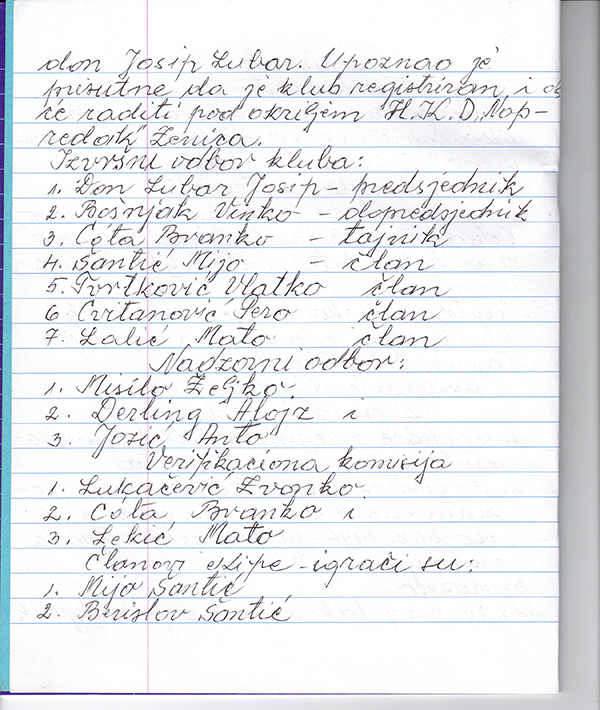 don Josip Lubar. Upoznao je
prisutne da je klub registriran i da
će raditi pod okriljem H.K.D. Nap-
redak Zenica.
Izvršni odbor kluba:
1. Don Lubar Josip - predsjednik
2. Bošnjak Vinko - dopredsjednik
3. Ćóta Branko - tajnik
4. Šantić Mijo - član
5. Tvrtković Vlatko član
6 Cvitanović Pero član
7. Lalić Mato član
Nadzorni odbor:
1. Misilo Željko
2. Derling Alojz i
3. Jozić Anto
Verifikaciona komisija
1. Lukačević Zvonko
2. Ćóta Branko i
3. Lekić Mato
Članovi ekipe - igrači su:
1. Mijo Šantić
2. Berislav Šantić